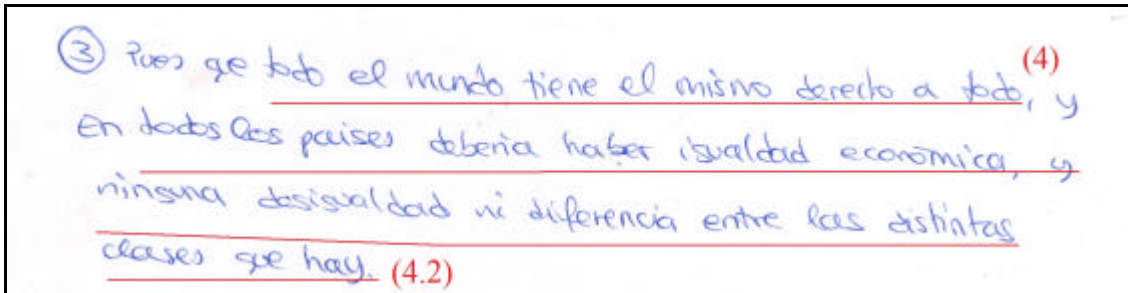 ③ Pues qe todo el mundo tiene el mismo derecho a todo, y (4)
En todos los paises deberia haber igualdad económica, y
ninguna desigualdad ni diferencia entre las distintas
clases que hay. (4.2)